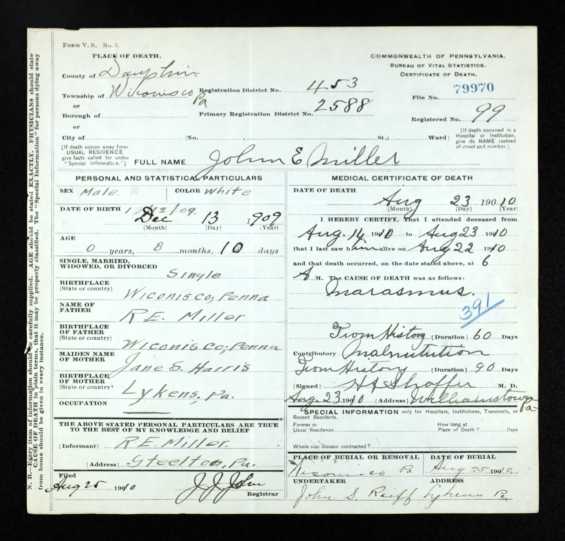 Form V. S. No. 5.
PLACE OF DEATH.
County of Dauphin
Township of Wiconisco Pa
or
Borough of
or
City of (No. St.; Ward)
COMMONWEALTH OF PENNSYLVANIA.
BUREAU OF VITAL STATISTICS.
CERTIFICATE OF DEATH.
Registration District No. 453
File No. 79970
Primary Registration District No. 2588
Registered No. 99
[If death occurs away from USUAL RESIDENCE give facts called for under "Special Information."]
[If death occurred in a Hospital or Institution, give its NAME instead of street and number.]
FULL NAME John E Miller
PERSONAL AND STATISTICAL PARTICULARS
SEX Male
COLOR White
DATE OF BIRTH Dec 13 1909
(Month) (Day) (Year)
AGE
0 years, 8 months, 10 days
SINGLE, MARRIED, WIDOWED, OR DIVORCED Single
BIRTHPLACE (State or country) Wiconisco, Penna
NAME OF FATHER R.E. Miller
BIRTHPLACE OF FATHER (State or country) Wiconisco, Penna
MAIDEN NAME OF MOTHER Jane S. Harris
BIRTHPLACE OF MOTHER (State or country) Lykens, Pa.
OCCUPATION
THE ABOVE STATED PERSONAL PARTICULARS ARE TRUE TO THE BEST OF MY KNOWLEDGE AND BELIEF
(Informant) R.E. Miller
(Address) Steelton, Pa.
Filed
Aug 25 1910 J. J. John
Registrar
MEDICAL CERTIFICATE OF DEATH
DATE OF DEATH
Aug 23 19010
(Month) (Day) (Year)
I HEREBY CERTIFY, That I attended deceased from
Aug. 14 1910 to Aug 23 1910
that I last saw him alive on Aug 22 1910
and that death occurred, on the date stated above, at 6
A M. The CAUSE OF DEATH was as follows:
Marasmus.
391
From History (Duration) 60 Days
Contributory Malnutrition
From History (Duration) 90 Days
(Signed) H H Shaffer M. D.
Aug 23 1910 (Address) Williamstown Pa
*SPECIAL INFORMATION only for Hospitals, Institutions, Transients, or Recent Residents.
Former or Usual Residence
How long at Place of Death? Days
Where was Disease contracted?
PLACE OF BURIAL OR REMOVAL
Wiconisco Pa
DATE OF BURIAL
Aug 25 1910
UNDERTAKER
John S. Reiff
(Address)
Lykens Pa
N. B.—Every item of information should be carefully supplied. AGE should be stated EXACTLY. PHYSICIANS should state
CAUSE OF DEATH in plain terms, that it may be properly classified. The "Special Information" for persons dying away
from home should be given in every instance.